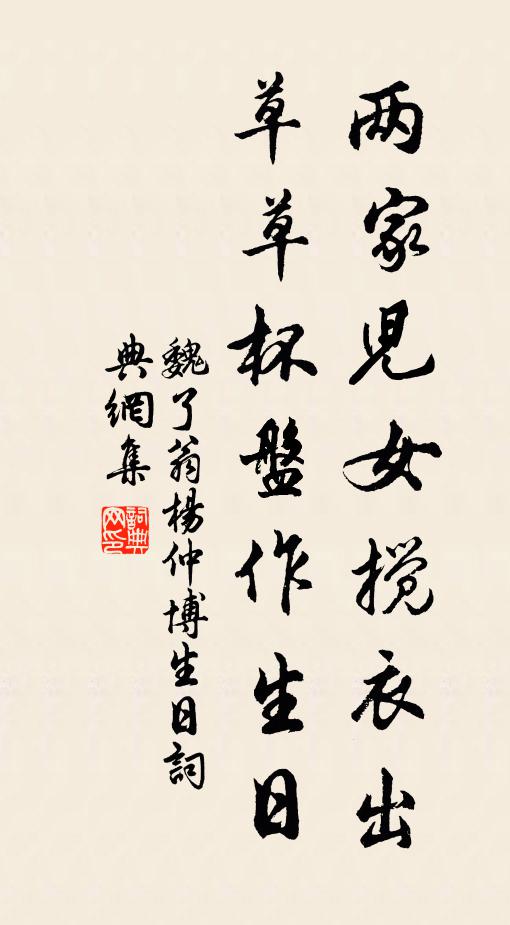 两家児女搅衣出
草草杯盤作生日
魏了翁楊仲博生日詞
典網集
詞典网印